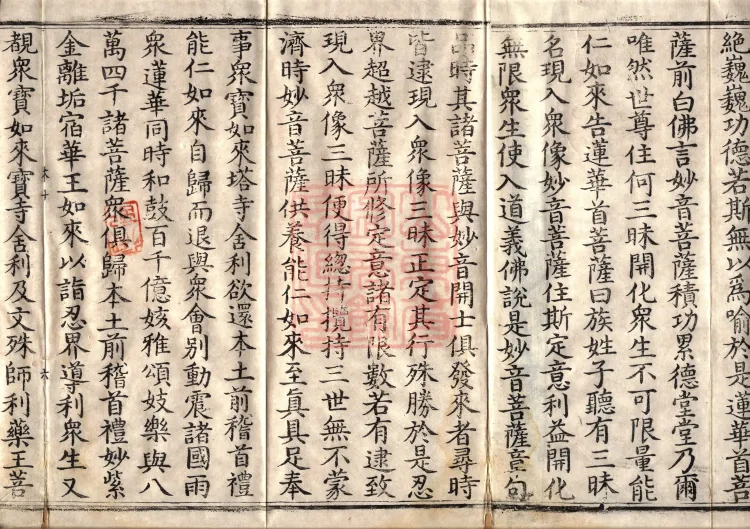 絶巍巍功德若斯無以為喻於是蓮華首菩
薩前白佛言妙音菩薩積功累德堂堂乃爾
唯然世尊住何三昧開化衆生不可限量能
仁如來告蓮華首菩薩曰族姓子聽有三昧
名現入衆像妙音菩薩住斯定意利益開化
無限衆生使入道義佛說是妙音菩薩章句
品時其諸菩薩與妙音開士俱發來者尋時
皆逮現入衆像三昧正定其行殊勝於是忍
界超越菩薩所修定意諸有限數若有逮致
現入衆像三昧便得總持攬持三世無不蒙
濟時妙音菩薩供養能仁如來至真具足奉
事衆寶如來塔寺舍利欲還本土前稽首禮
能仁如來自歸而退與衆會別動震諸國雨
衆蓮華同時和鼓百千億姟雅頌妓樂與八
萬四千諸菩薩衆俱歸本土前稽首禮妙紫
金離垢宿華王如來以詣忍界導利衆生又
覩衆寶如來寶寺舍利及文殊師利藥王菩